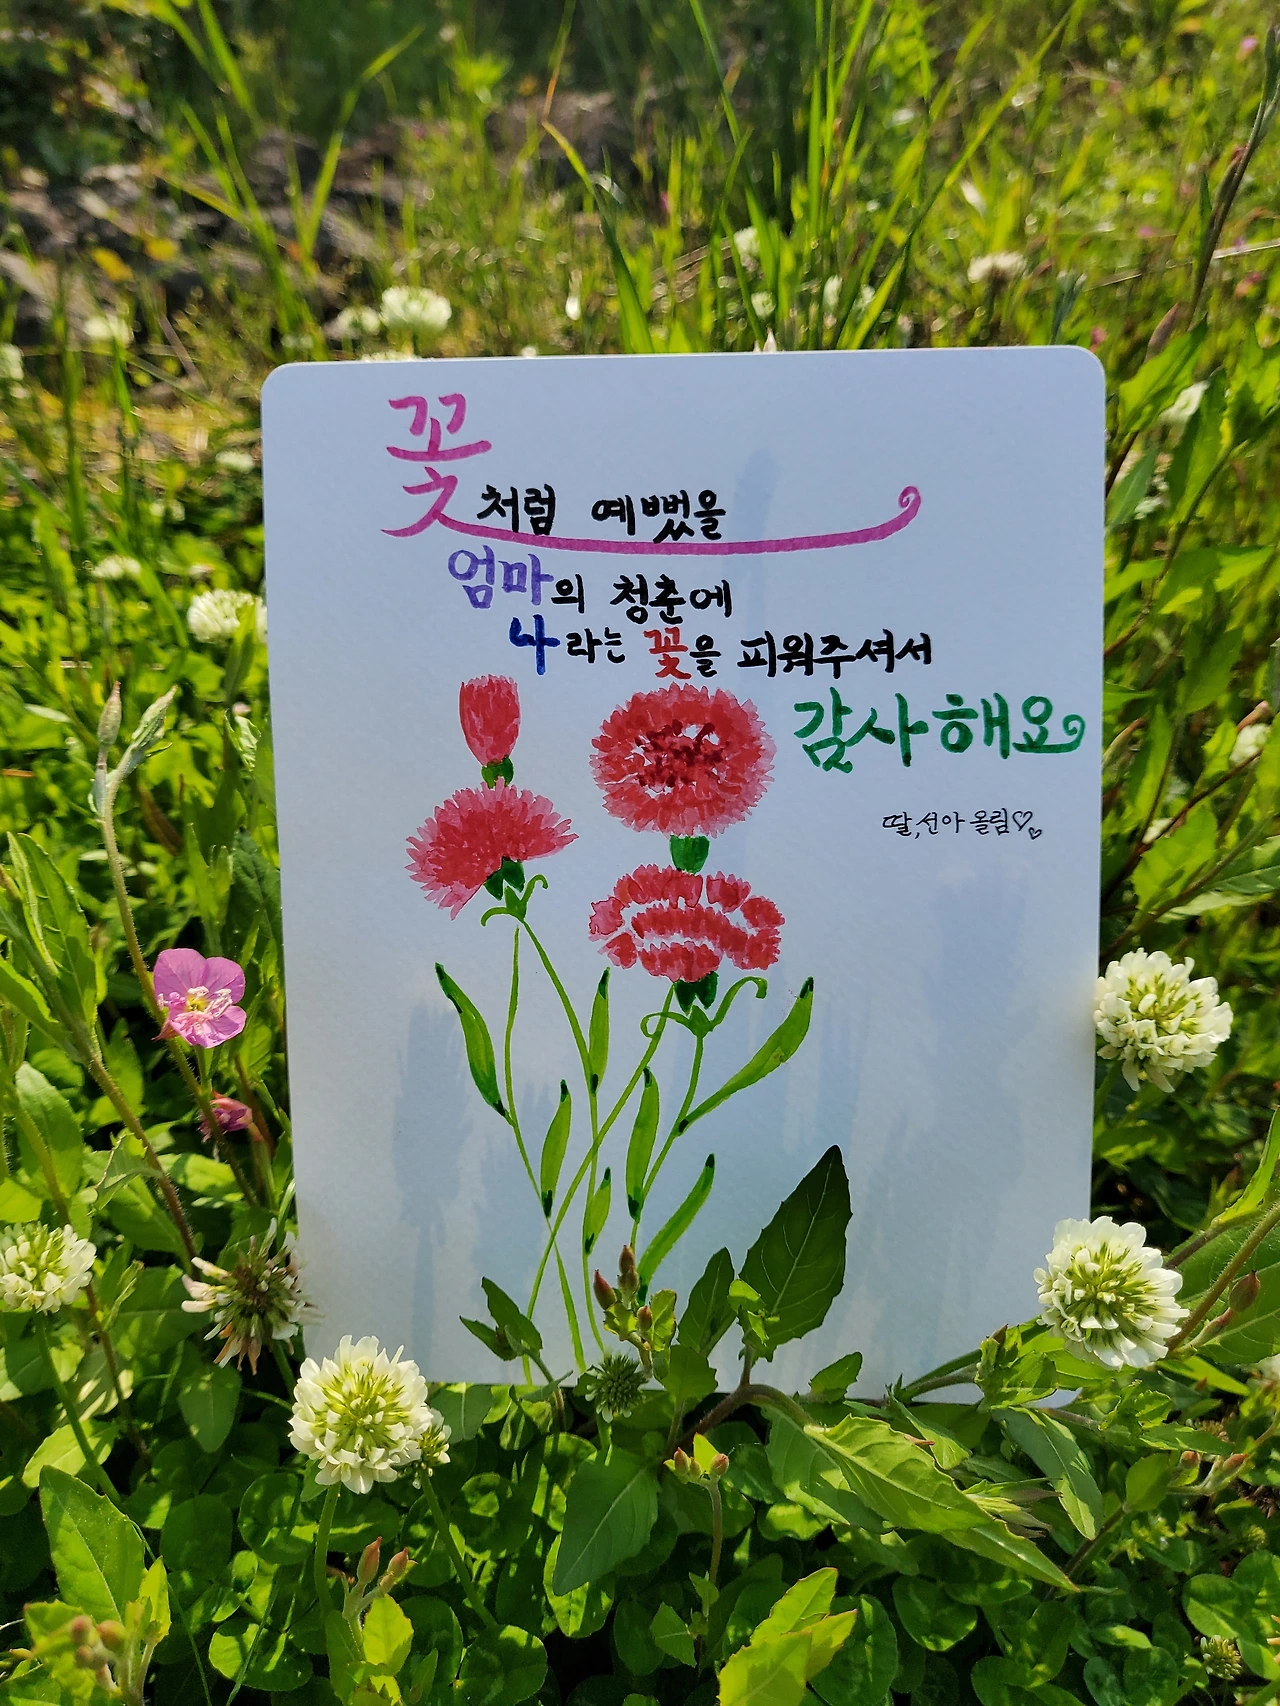 꽃처럼 예뻤을
엄마의 청춘에
나라는 꽃을 피워주셔서
감사해요
딸,선아 올림♡♡